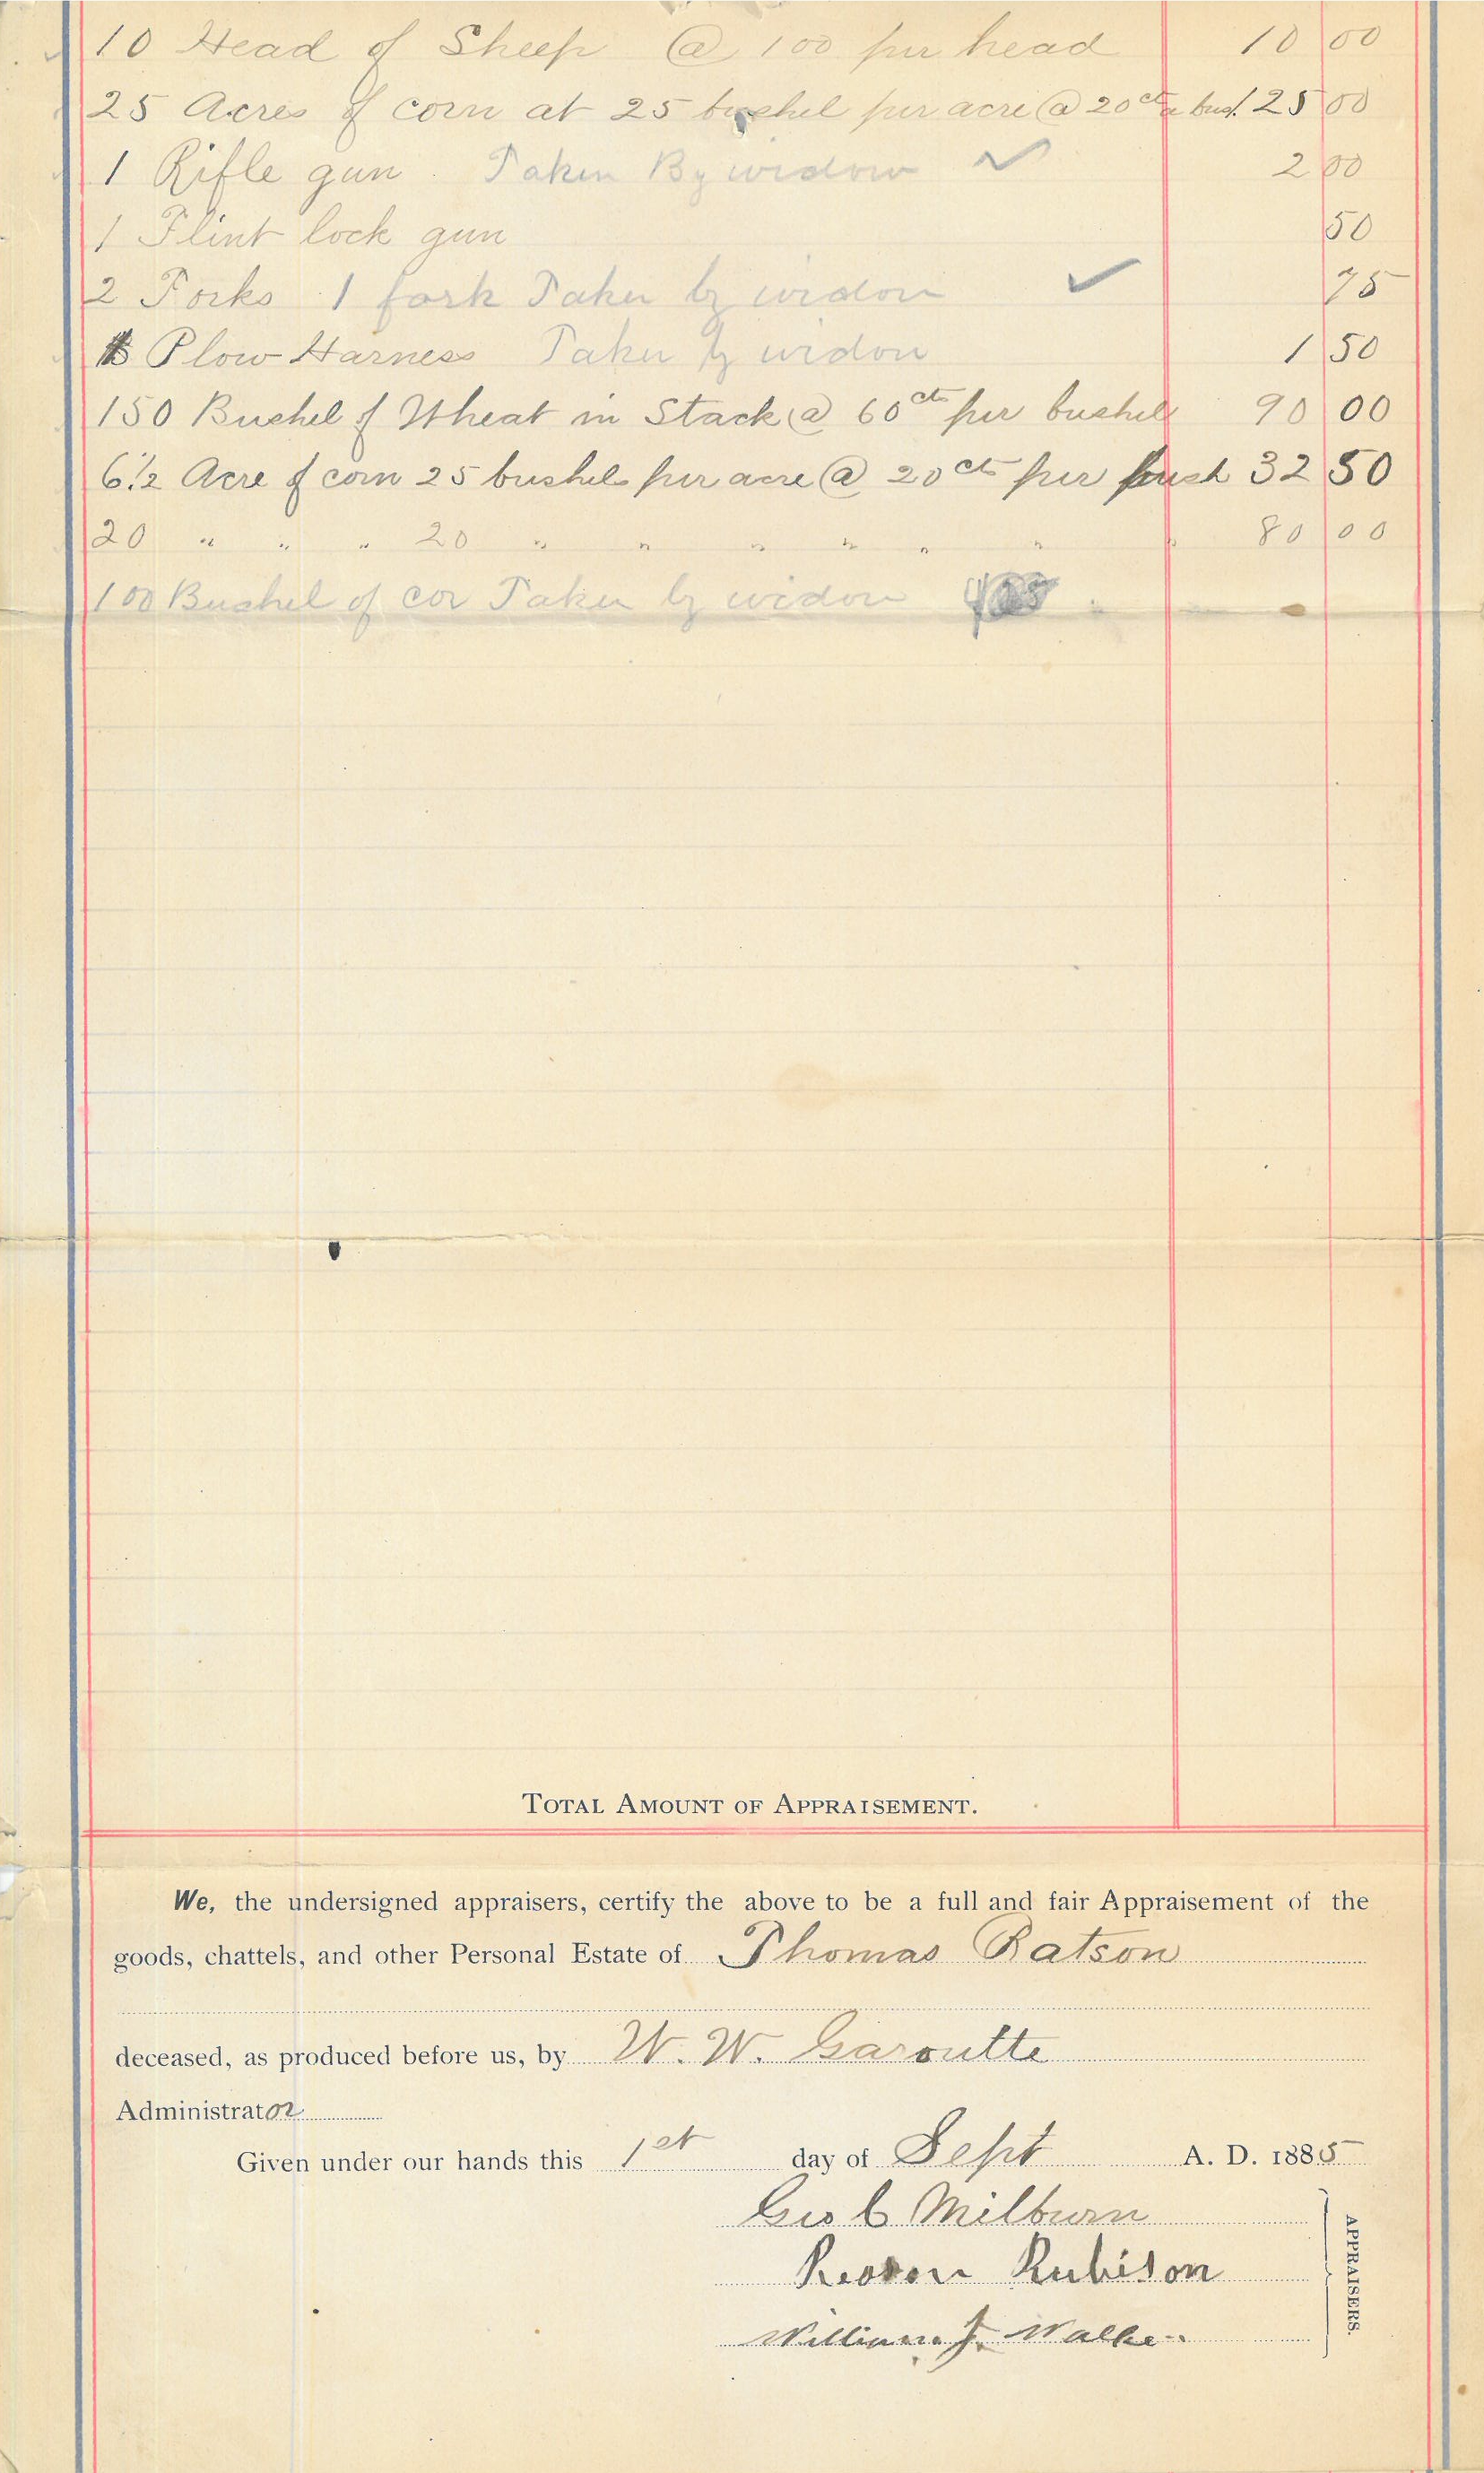 10 Head of Sheep @ 100 per head 10 00
25 Acres of corn at 25 bushel per acre @ 20cts a bus. 25 00
1 Rifle gun. Taken By widow ✓ 2 00
1 Flint lock gun 50
2 Forks 1 fork Taken by widow ✓ 75
Plow Harness Taken by widow 1 50
150 Bushel of Wheat in Stack @ 60cts per bushell 90 00
6 1/2 Acre of corn 25 bushels per acre @ 20cts per bush 32 50
20 " " " 20 " " " " " " 80 00
100 Bushel of cor Taken by widow
TOTAL AMOUNT OF APPRAISEMENT.
We, the undersigned appraisers, certify the above to be a full and fair Appraisement of the
goods, chattels, and other Personal Estate of Thomas Batson
deceased, as produced before us, by W. W. Garoutte
Administrator
Given under our hands this 1st day of Sept A. D. 1885
Geo C Milburn
Reason Rubison
William J. Walker
APPRAISERS.